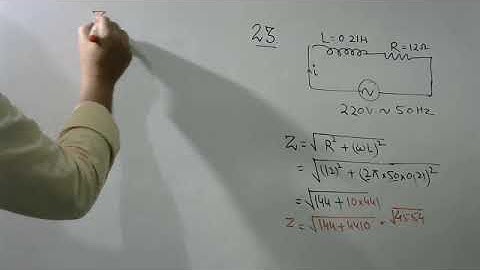 23
L=0.21H R=12Ω
i
220V ~ 50Hz
Z = √R² + (ωL)²
= √(12)² + (2π×50×0.21)²
= √144 + 10×441
Z = √144 + 4410 = √4554